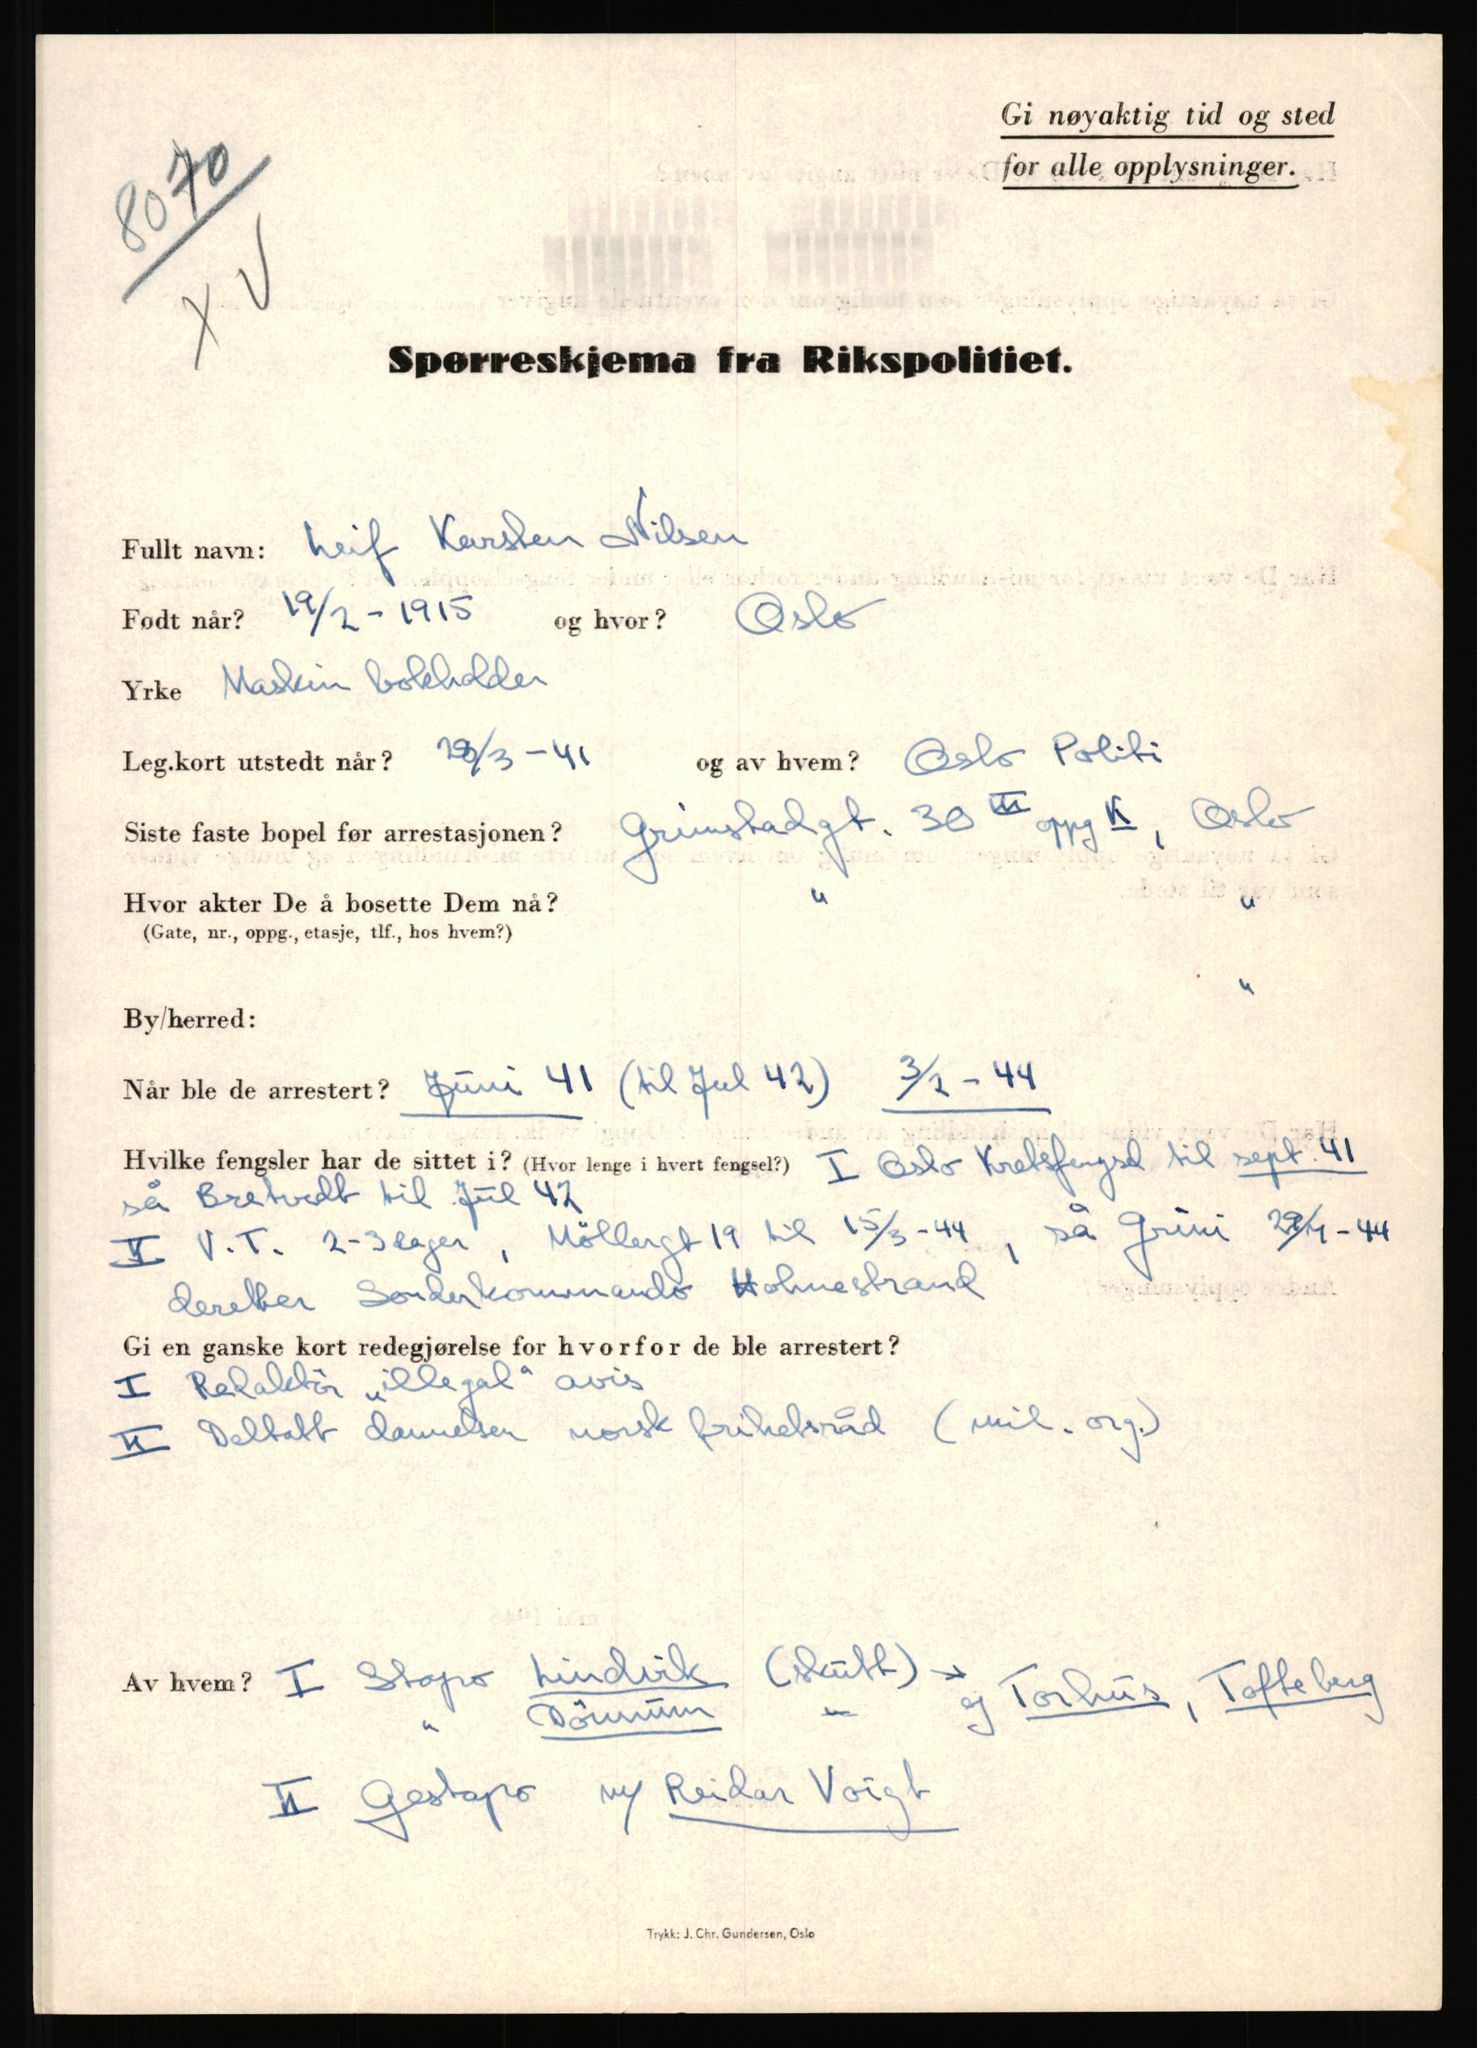 Gi nøyaktig tid og sted
for alle opplysninger.
8070
X V
Spørreskjema fra Rikspolitiet.
Fullt navn: Leif Karsten Nilsen
Født når? 19/2 - 1915 og hvor? Oslo
Yrke Maskin bokholder
Leg.kort utstedt når? /3 - 41 og av hvem? Oslo Politi
Siste faste bopel før arrestasjonen? Grimstadgt. 30 III oppg K, Oslo
Hvor akter De å bosette Dem nå? " "
(Gate, nr., oppg., etasje, tlf., hos hvem?)
"
By/herred:
Når ble de arrestert? Juni 41 (til Jul 42) 3/2 - 44
Hvilke fengsler har de sittet i? (Hvor lenge i hvert fengsel?) I Oslo Kretsfengsel til sept. 41
så Bretvedt til Jul 42
II V.T. 2-3 dager, Möllergt 19 til 15/3 - 44, så Grini - 44
deretter Sonderkommando Holmestrand
Gi en ganske kort redegjørelse for hvorfor de ble arrestert?
I Redaktör „illegal" avis
II Deltatt dannelsen norsk frihetsråd (mil. org.)
Av hvem? I Stapo Lindvik (skutt) → og Torhus, Tofteberg
" Dönnum "
II Gestapo m/ Reidar Voigt
Trykk: J. Chr. Gundersen, Oslo